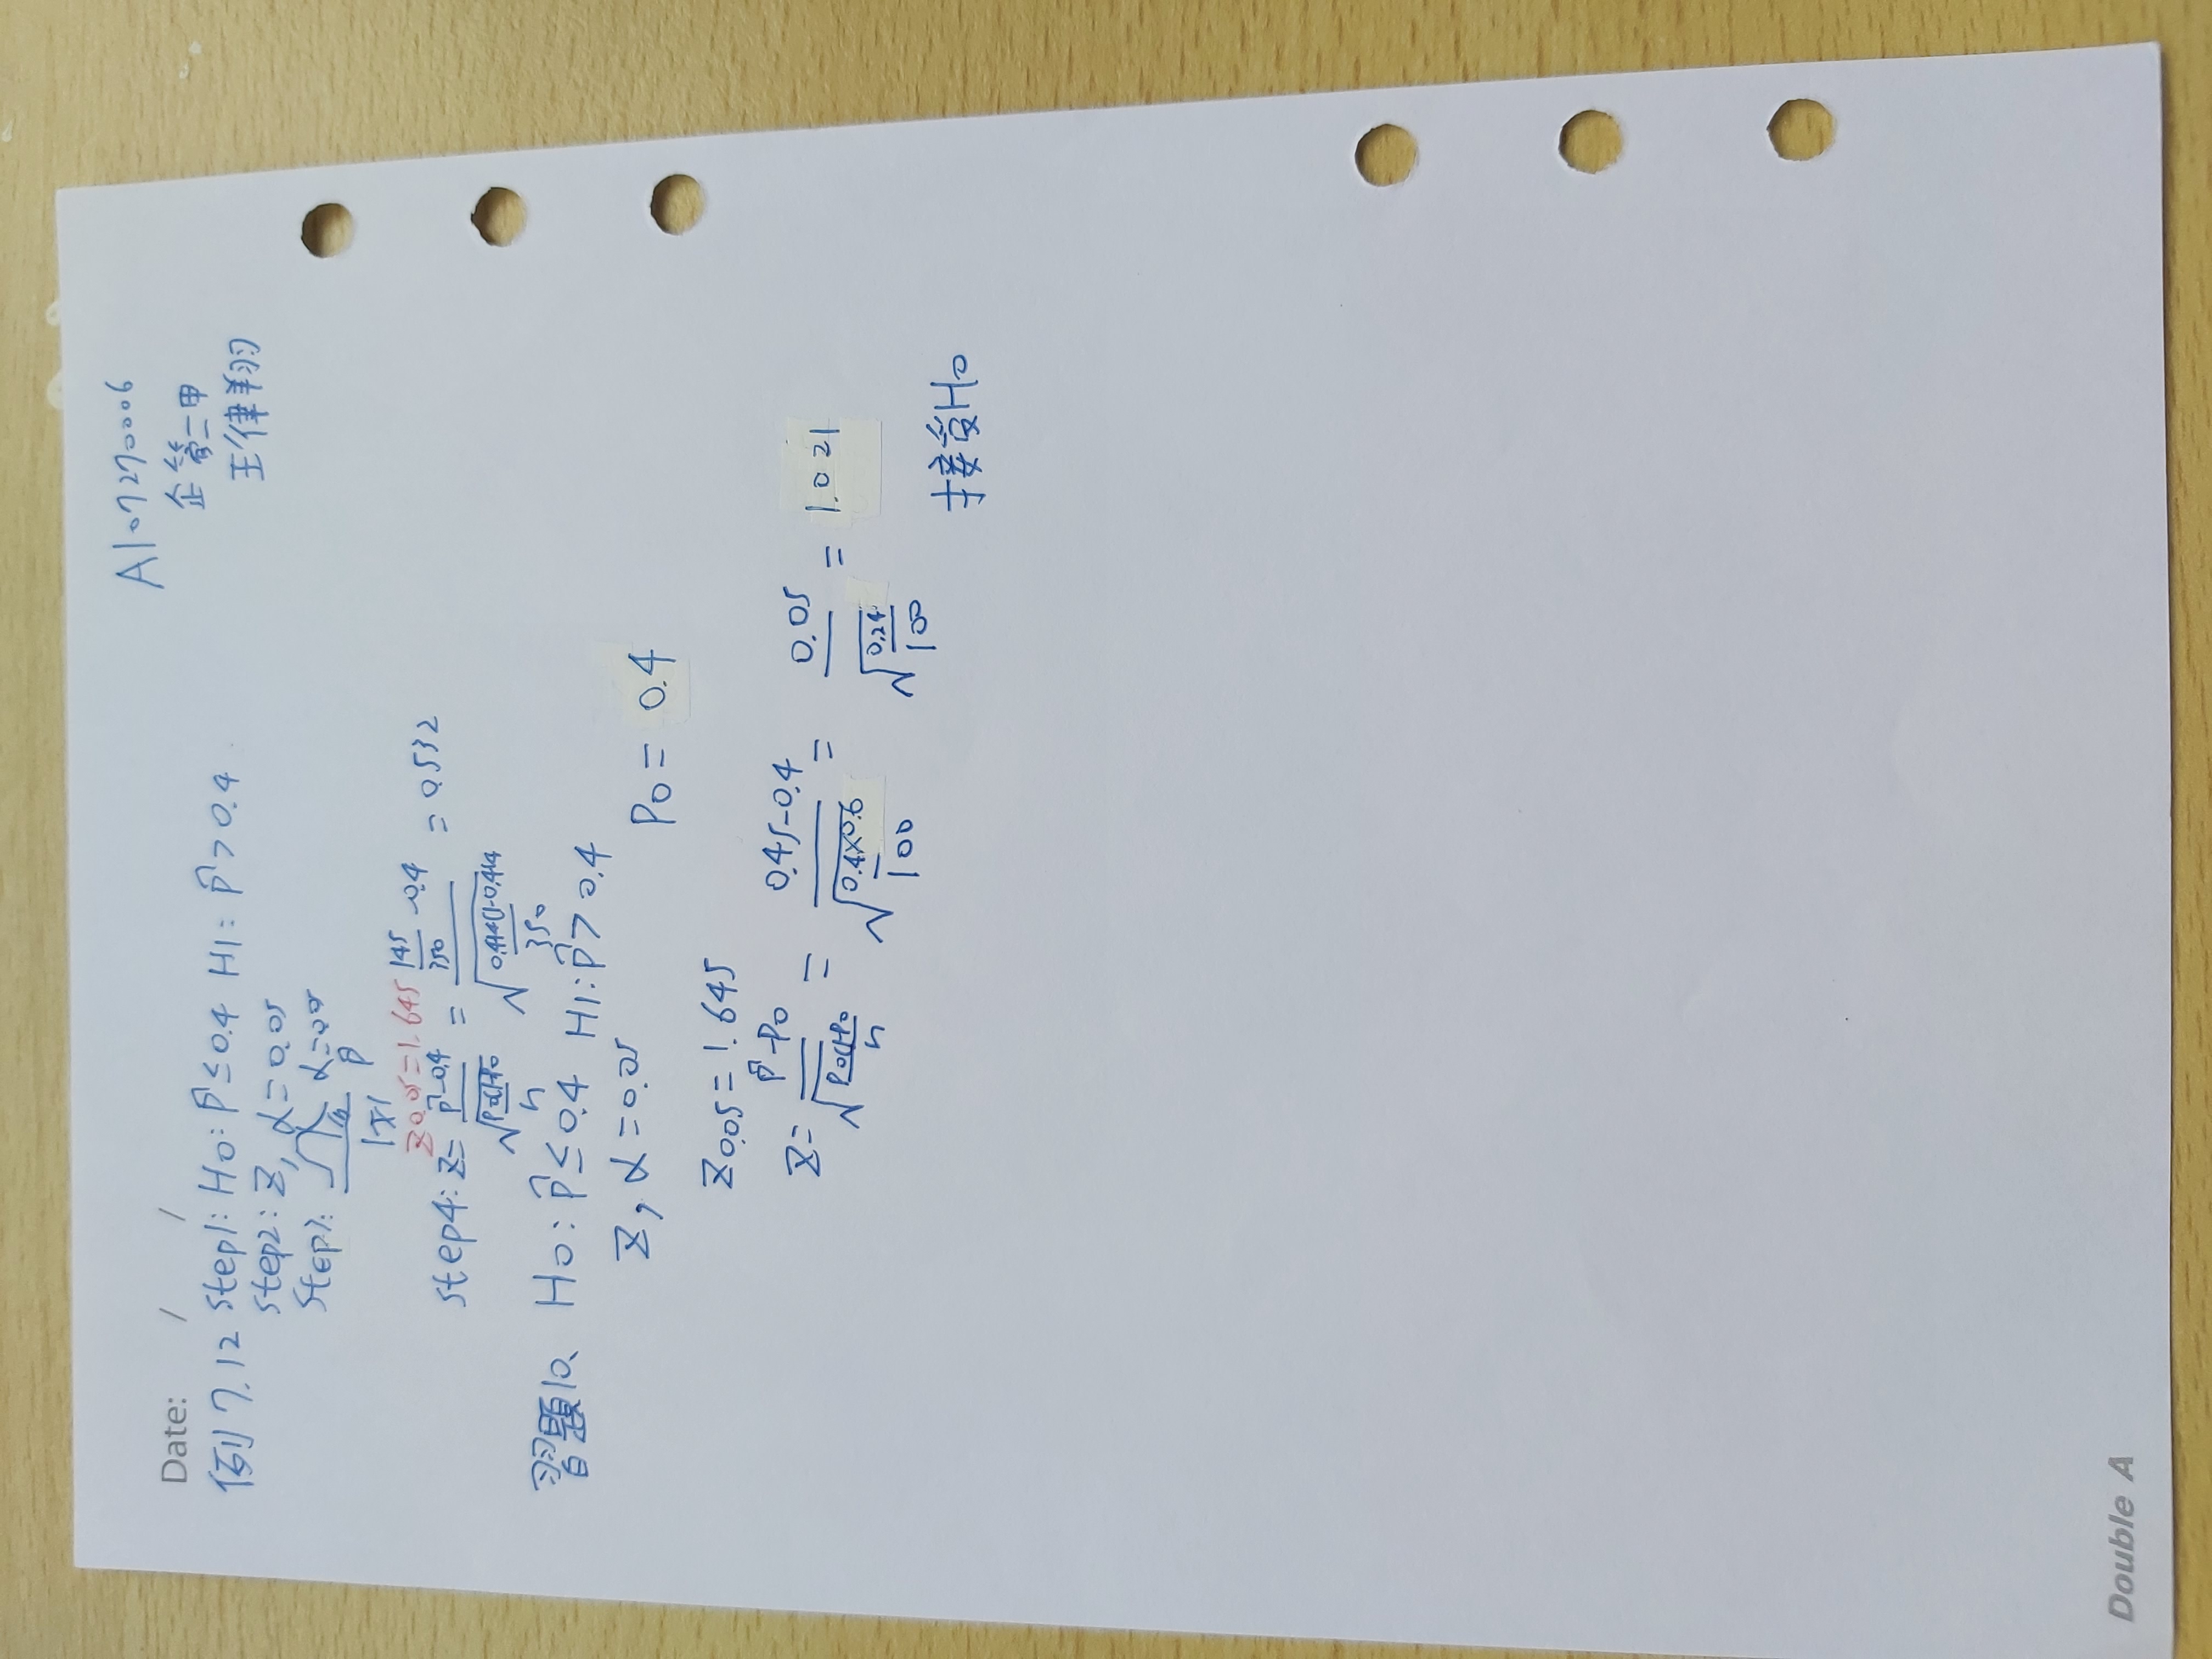 A107270006
企管二甲
王律翔
Date: / /
例7.12 step1: H0: p̂ ≤ 0.4 H1: p̂ > 0.4
step2: Z, α = 0.05
step3: α = 0.05
p̂
Z0.05 = 1.645
step4: Z = (p̂ - 0.4) / √(P0(1-P0 / n) = (145/350 - 0.4) / √(0.414(1-0.414 / 350) = 0.532
習題10、 H0: p̂ ≤ 0.4 H1: p̂ > 0.4
Z, α = 0.05
P0 = 0.4
Z0.05 = 1.645
Z = (p̂ - P0) / √(P0(1-P0 / n) = (0.45 - 0.4) / √(0.4×0.6 / 100) = 0.05 / √(0.24 / 100) = 1.021
接受H0
Double A